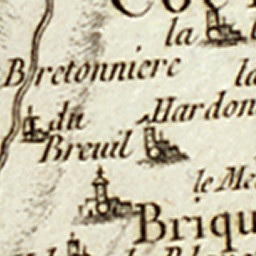 la
Bretonniere la
du Hardon
Breuil
le Me
Briqu